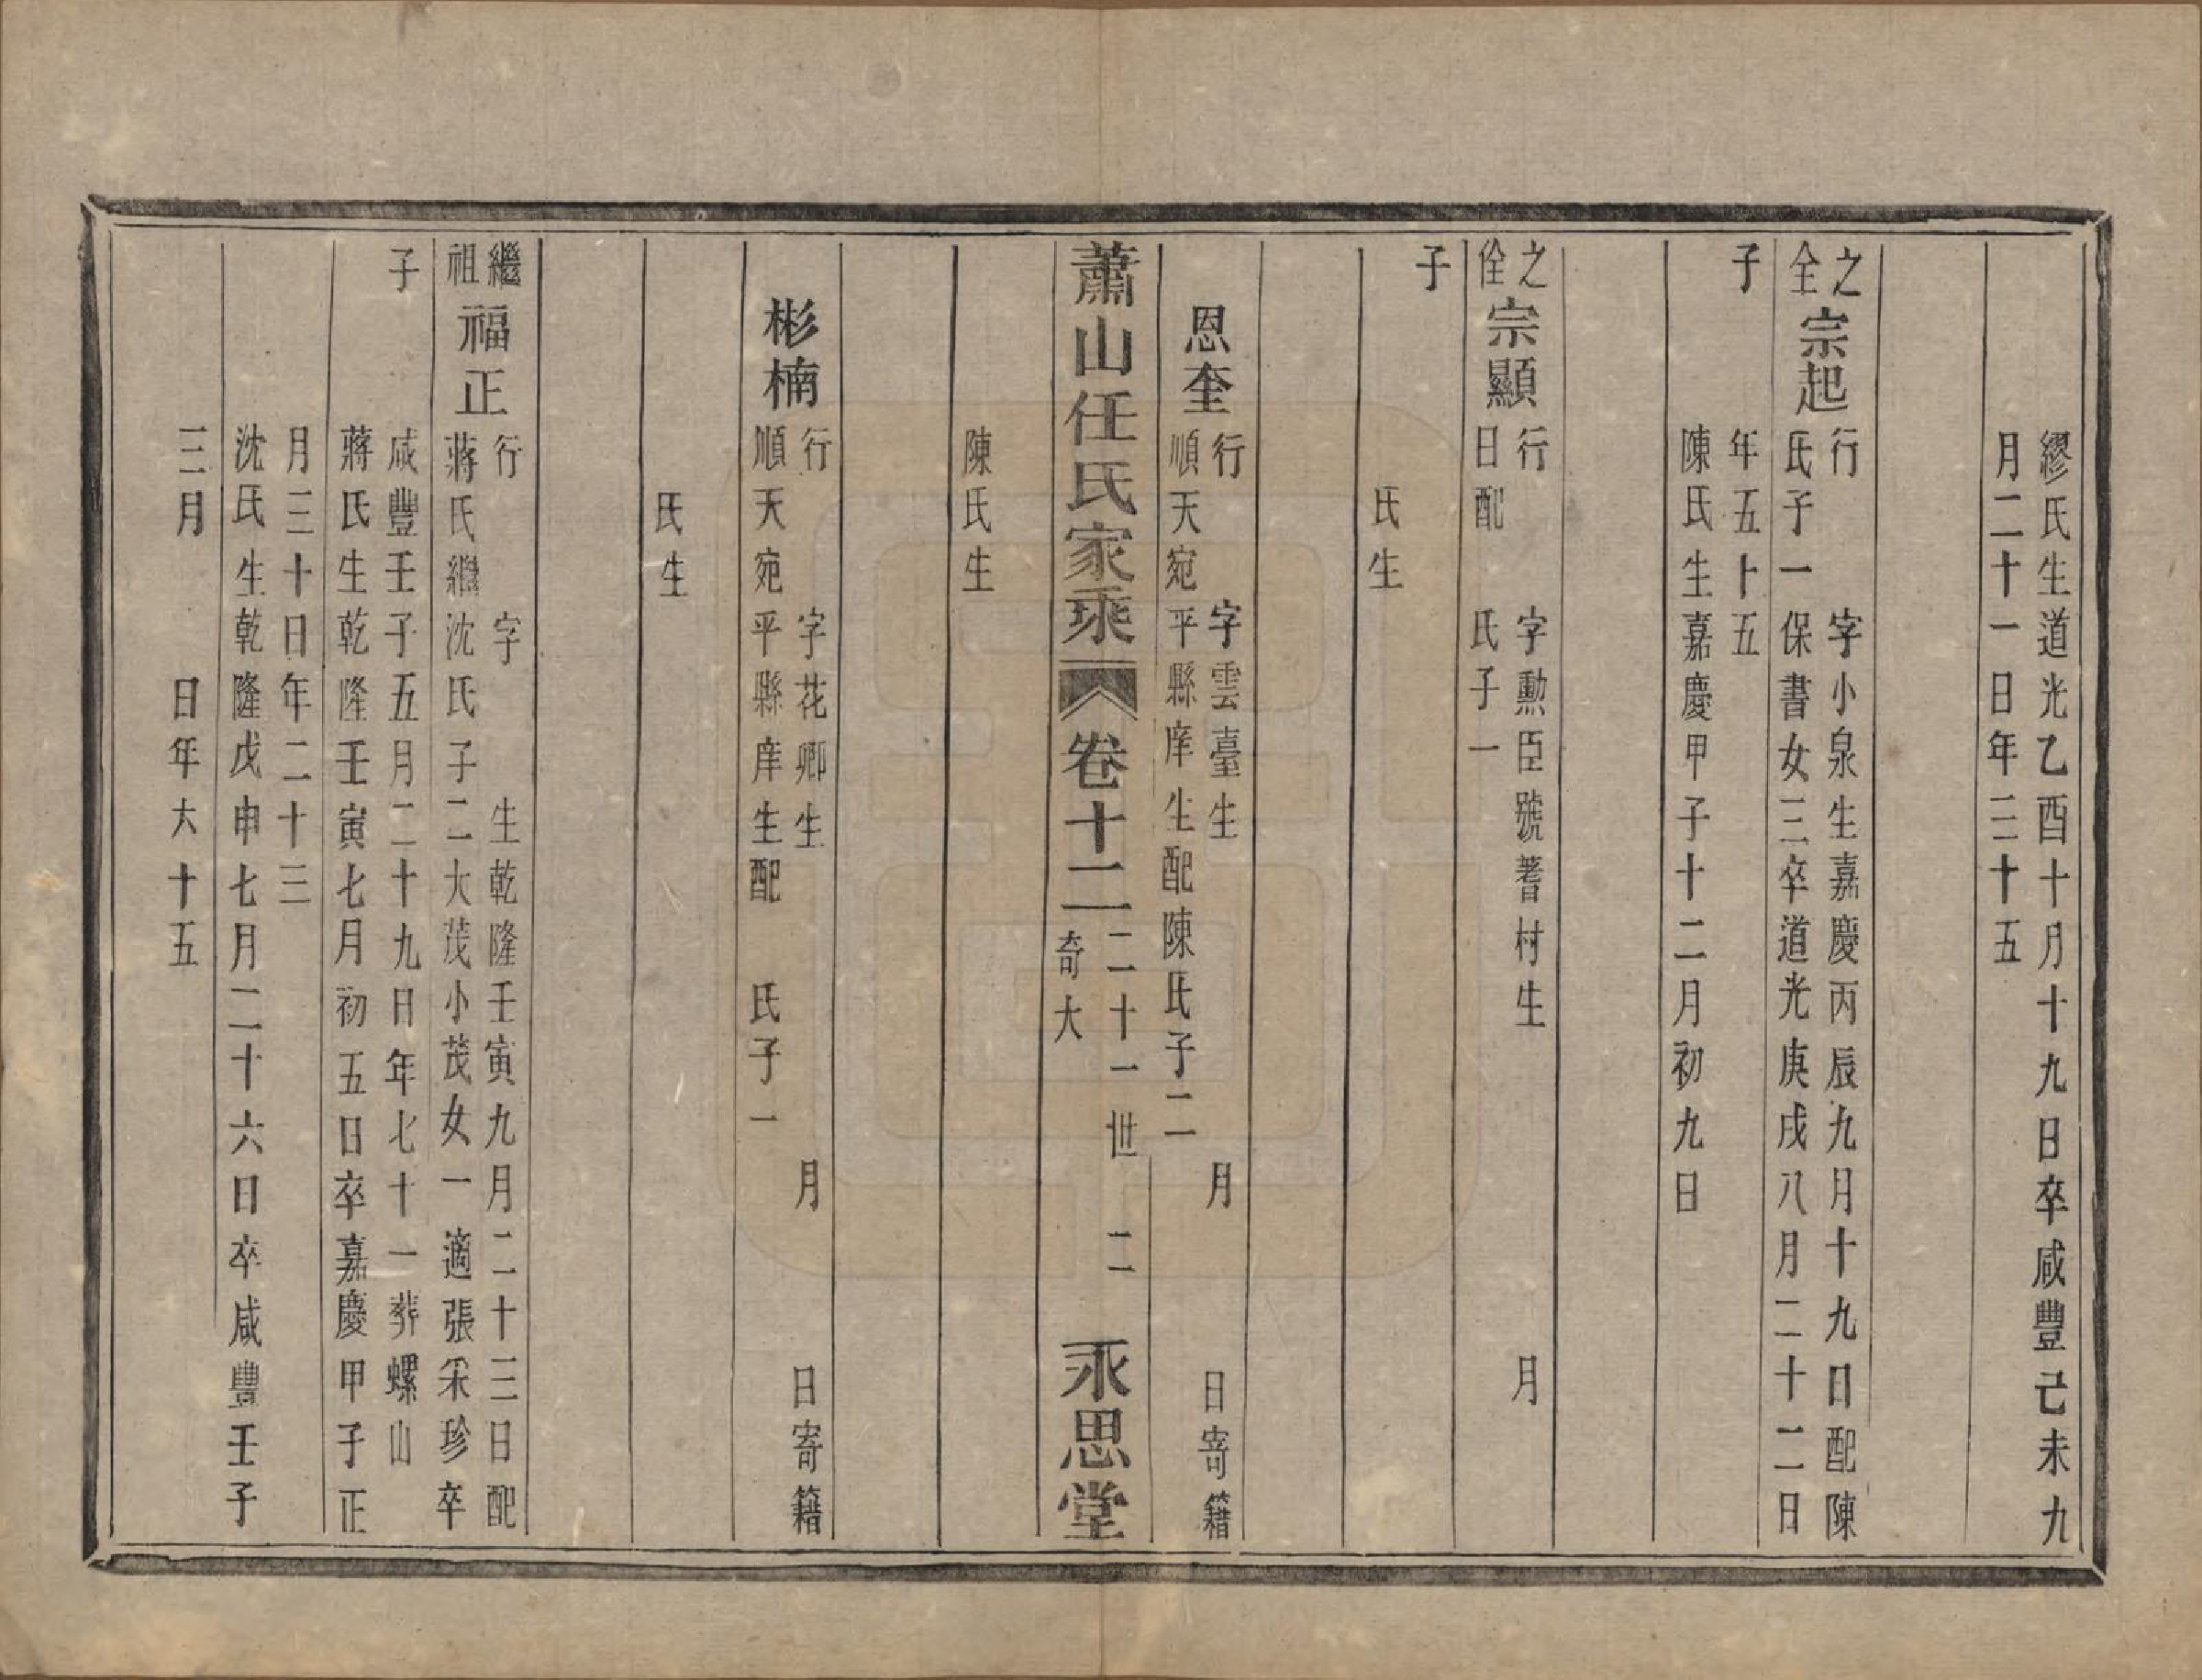 繆氏生道光乙酉十月十九日卒咸豐己未九
月二十一日年三十五
之全子
宗起
行 字小泉生嘉慶丙辰九月十九日配陳
氏子一保書女三卒道光庚戌八月二十二日
年五十五
陳氏生嘉慶甲子十二月初九日
之佺子
宗顯
行 字勲臣號蓍村生 月
日配 氏子一
氏生
恩奎
行 字雲臺生 月 日寄籍
順天宛平縣庠生配陳氏子二
蕭山任氏家乘 卷十二 二十一世 二 奇大 永思堂
陳氏生
彬楠
行 字花卿生 月 日寄籍
順天宛平縣庠生配 氏子一
氏生
繼祖子
福正
行 字 生乾隆壬寅九月二十三日配
蔣氏繼沈氏子二大茂小茂女一適張采珍卒
咸豐壬子五月二十九日年七十一葬螺山
蔣氏生乾隆壬寅七月初五日卒嘉慶甲子正
月三十日年二十三
沈氏生乾隆戊申七月二十六日卒咸豐壬子
三月 日年六十五